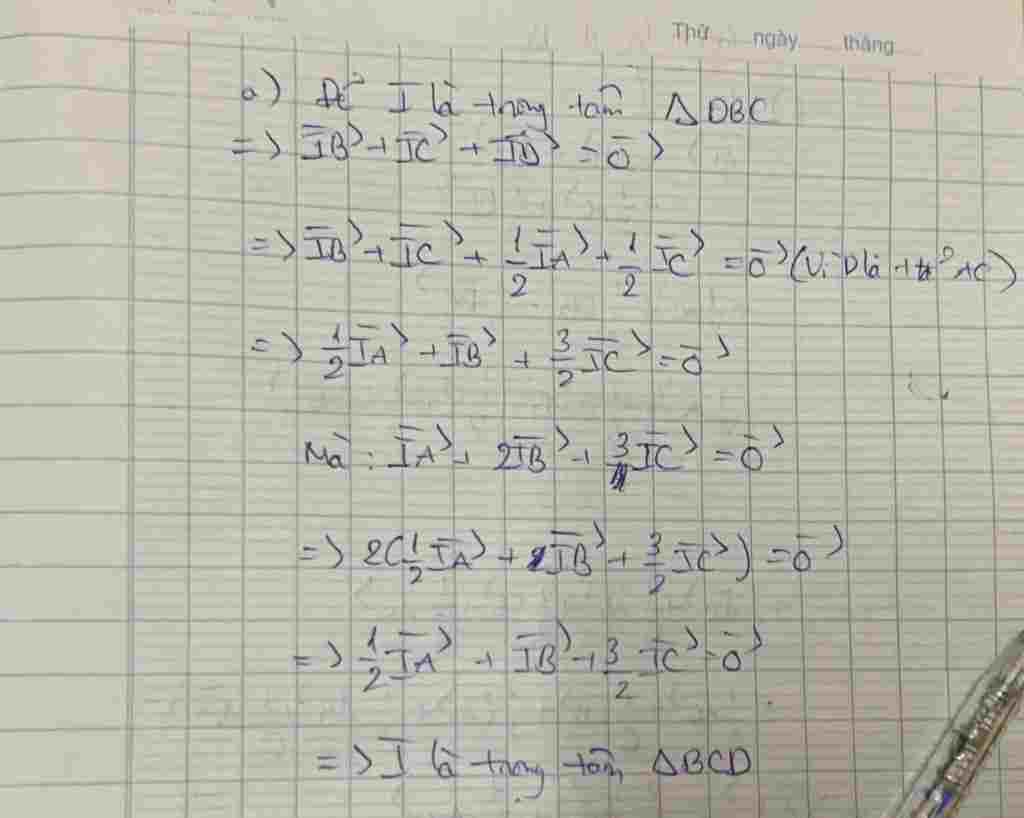 Thứ ngày tháng
a) Để I là trọng tâm △DBC
=> IB→ + IC→ + ID→ = 0→
=> IB→ + IC→ + 1/2 IA→ + 1/2 IC→ = 0→ (Vì D là tđ AC)
=> 1/2 IA→ + IB→ + 3/2 IC→ = 0→
Mà : IA→ + 2IB→ + 3IC→ = 0→
=> 2(1/2 IA→ + IB→ + 3/2 IC→) = 0→
=> 1/2 IA→ + IB→ + 3/2 IC→ = 0→
=> I là trọng tâm △BCD